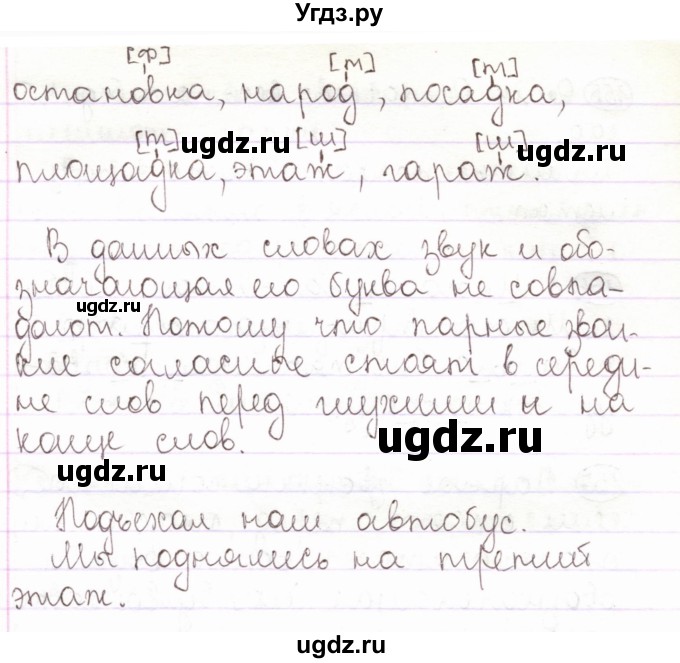 Угдз.ру
[ф] [т] [т]
остановка, народ, посадка,
[т] ugdz.ru [ш] [ш]
площадка, этаж, гараж.
В данных словах звук и обо-
значающая его буква не совпа-
ugdz.ru
дают. Потому что парные звон-
кие согласные стоят в середи-
не слов перед глухими и на
конце слов. ugdz.ru
ugdz.ru
Подъехал наш автобус.
Мы поднялись на третий
этаж.
ugdz.ru
ugdz.ru